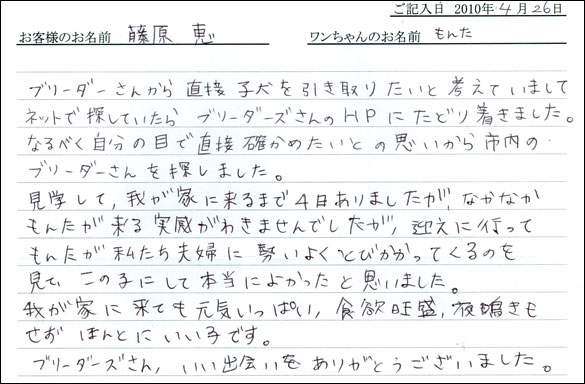 ご記入日 2010年 4月 26日
お客様のお名前 藤原 恵 ワンちゃんのお名前 もんた
ブリーダーさんから直接子犬を引き取りたいと考えていまして
ネットで探していたら ブリーダーズさんのHPにたどり着きました。
なるべく自分の目で直接確かめたいとの思いから市内の
ブリーダーさんを探しました。
見学して、我が家に来るまで4日ありましたが、なかなか
もんたが来る実感がわきませんでしたが、迎えに行って
もんたが私たち夫婦に勢いよくとびかかってくるのを
見て、この子にして本当によかったと思いました。
我が家に来ても元気いっぱい、食欲旺盛、夜鳴きも
せず ほんとにいい子です。
ブリーダーズさん、いい出会いをありがとうございました。